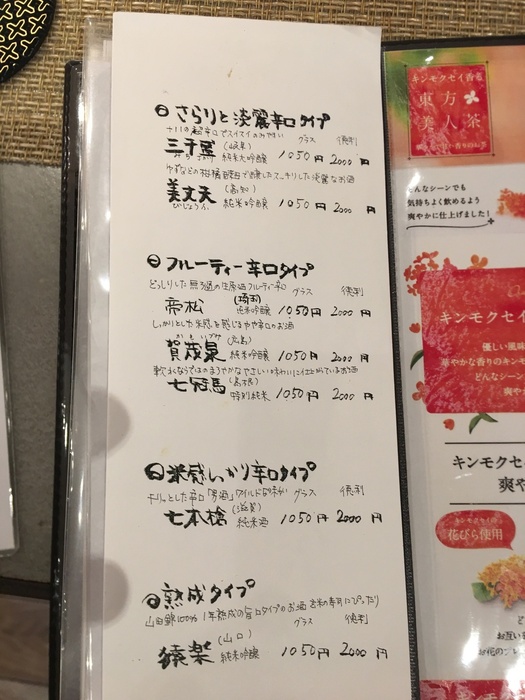 さらりと淡麗辛口タイプ
+11の超辛口でスイスイのみやすい グラス 徳利
三千盛 (岐阜) 純米大吟醸 1050円 2000円
ゆずなどの柑橘 で醸したスッキリした淡麗なお酒
美丈夫 (高知)
びじょうふ 純米吟醸 1050円 2000円
フルーティー辛口タイプ
どっしりした無ろ過の生原酒フルーティー辛口 グラス 徳利
帝松 (埼玉) 純米吟醸 1050円 2000円
しっかりとした米感を感じるやや辛口のお酒
かもいずみ (広島)
賀茂泉 純米吟醸 1050円 2000円
軟水ならではのまろやかなやさしい味わいに仕上がっているお酒
七冠馬 (島根) 特別純米 1050円 2000円
米感しっかり辛口タイプ
キリッとした辛口「男酒」ワイルドな味わい グラス 徳利
七本槍 (滋賀) 純米酒 1050円 2000円
熟成タイプ
山田錦100% 1年熟成の旨口タイプのお酒 お米の寿司にぴったり
グラス 徳利
猿楽 (山口) 純米吟醸 1050円 2000円
キンモクセイ香る
東方
美人茶
どんなシーンでも
気持ちよく飲めるよう
爽やかに仕上げました!
キンモクセイ
優しい風味
華やかな香りのキンモク
どんなシーン
キンモクセ
爽や
キンモクセイの
花びら使用
お互い
お花のブレ